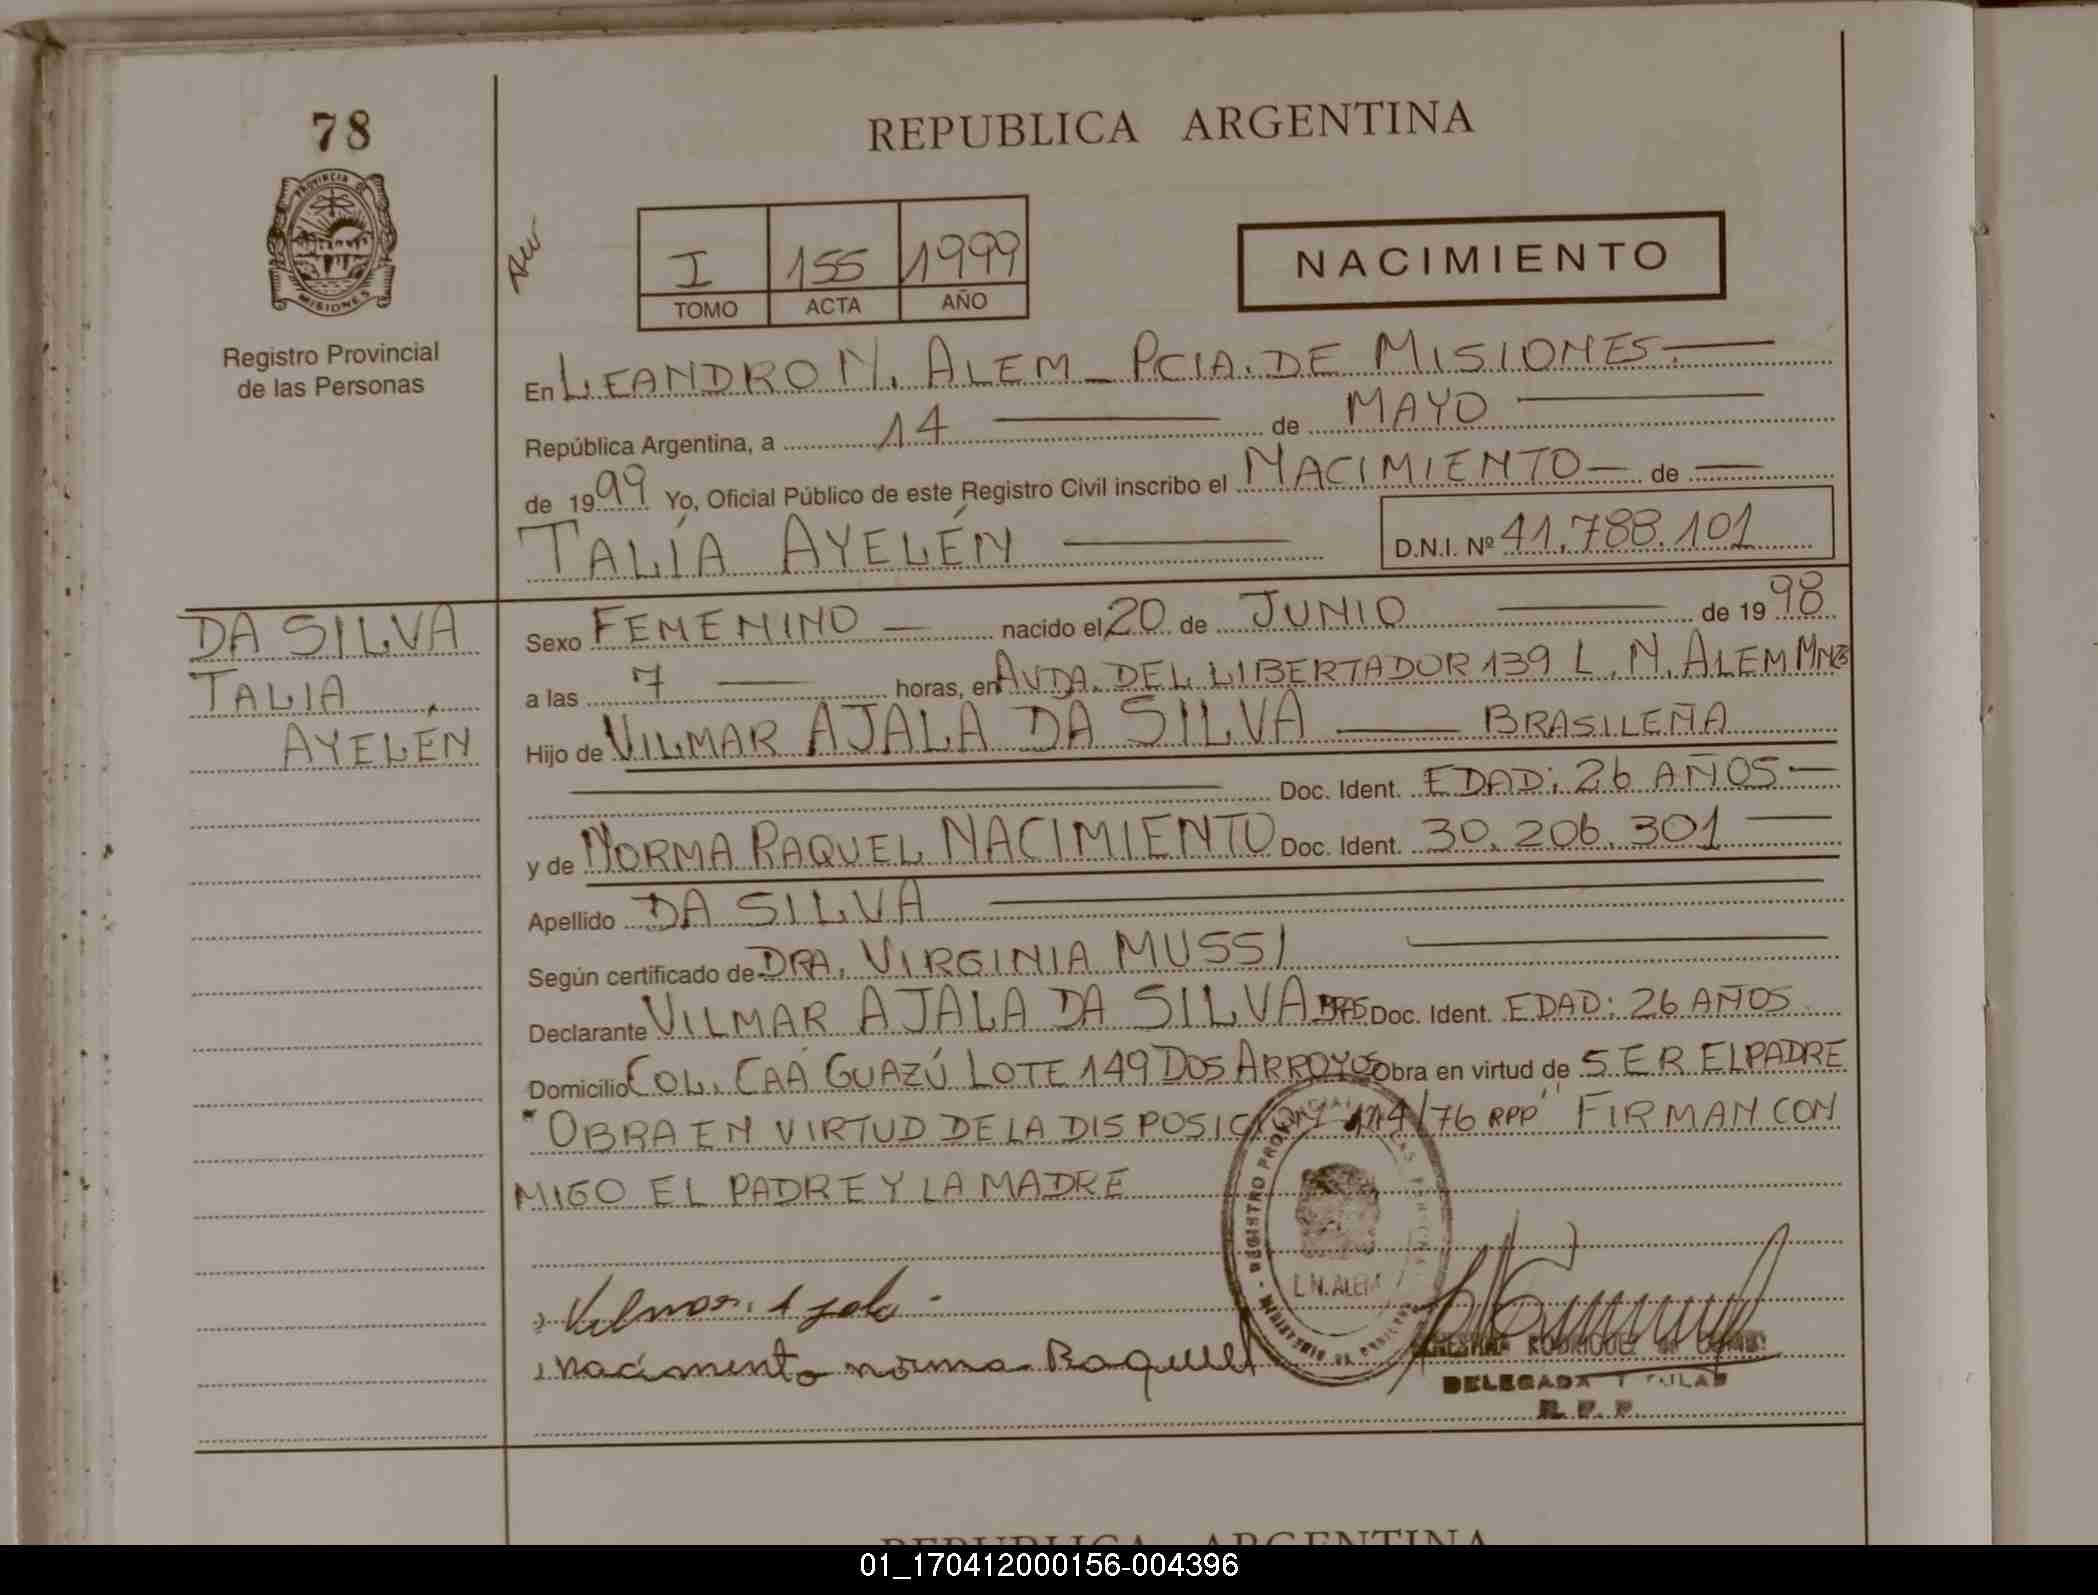 78
REPUBLICA ARGENTINA
PROVINCIA DE
MISIONES
Registro Provincial
de las Personas
I 155 1999
TOMO ACTA AÑO
NACIMIENTO
En LEANDRO N. ALEM - PCIA. DE MISIONES.
República Argentina, a 14 de MAYO
de 1999 Yo, Oficial Público de este Registro Civil inscribo el NACIMIENTO de
TALÍA AYELÉN D.N.I. Nº 41.788.101
DA SILVA
TALIA
AYELÉN
Sexo FEMENINO nacido el 20 de JUNIO de 1998
a las 7 horas, en AVDA. DEL LIBERTADOR 139 L. N. ALEM MNES
Hijo de VILMAR AJALA DA SILVA BRASILEÑA
Doc. Ident. EDAD: 26 AÑOS
y de NORMA RAQUEL NACIMIENTO Doc. Ident. 30.206.301
Apellido DA SILVA
Según certificado de DRA. VIRGINIA MUSSI
Declarante VILMAR AJALA DA SILVA BRAS Doc. Ident. EDAD: 26 AÑOS
Domicilio COL. CAÁ GUAZÚ LOTE 149 DOS ARROYOS Obra en virtud de SER EL PADRE
"OBRA EN VIRTUD DE LA DISPOSICION 114/76 RPP" FIRMAN CON
MIGO EL PADRE Y LA MADRE
REGISTRO PROVINCIAL DE LAS PERSONAS
L.N. ALEM
Vilmar Ajala
nacimento norma Raquel
DELEGADA TITULAR
R. P. P.
REPUBLICA ARGENTINA
01_170412000156-004396